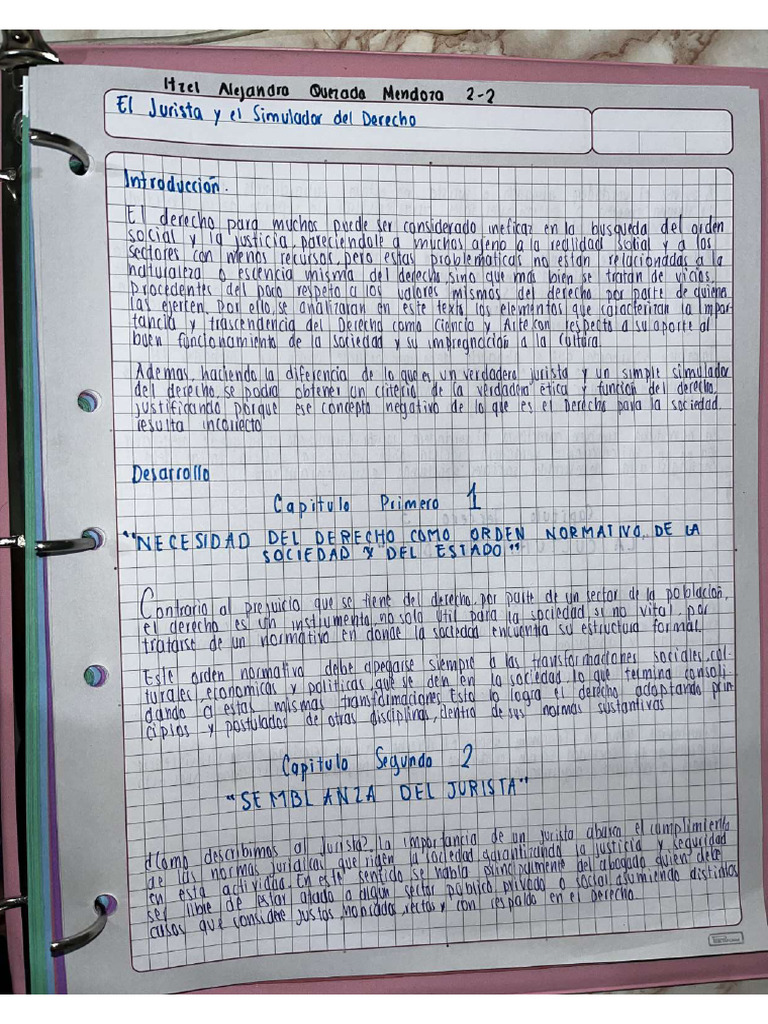 Itzel Alejandra Quezada Mendoza 2-2
El Jurista y el Simulador del Derecho
Introducción.
El derecho para muchos puede ser considerado ineficaz en la busqueda del orden
social y la justicia, pareciendole a muchos ajeno a la realidad social y a los
sectores con menos recursos, pero estas problematicas no estan relacionadas a la
naturaleza o escencia misma del derecho, sino que mas bien se tratan de vicios
procedentes del poco respeto a los valores mismos del derecho por parte de quienes
las ejercen. Por ello, se analizaran en este texto los elementos que caracterizan la impor-
tancia y trascendencia del Derecho como Ciencia y Arte con respecto a su aporte al
buen funcionamiento de la sociedad y su impregnación a la cultura.
Ademas, haciendo la diferencia de lo que es un verdadero jurista y un simple simulador
del derecho, se podra obtener un criterio de la verdadera ética y funcion del derecho,
justificando porque ese concepto negativo de lo que es el Derecho para la sociedad
resulta incorrecto
Desarrollo
Capitulo Primero 1
"NECESIDAD DEL DERECHO COMO ORDEN NORMATIVO, DE LA
SOCIEDAD Y DEL ESTADO"
Contrario al prejuicio que se tiene del derecho, por parte de un sector de la población,
el derecho es un instrumento, no solo util para la sociedad si no vital, por
tratarse de un normativo en donde la sociedad encuentra su estructura formal.
Este orden normativo debe apegarse siempre a las transformaciones sociales, cul-
turales, economicas y politicas que se den en la sociedad, lo que termina consoli-
dando a estas mismas transformaciones. Esto lo logra el derecho adoptando prin-
cipios y postulados de otras disciplinas, dentro de sus normas sustantivas
Capitulo Segundo 2
"SEMBLANZA DEL JURISTA"
¿Cómo describimos al jurista?, la importancia de un jurista abarca el cumplimiento
de las normas juridicas que rigen la sociedad garantizando la justicia y seguridad
en esta actividad. En este sentido se habla principalmente del abogado quien debe
ser libre de estar atado a algun sector publico, privado o social, asumiendo distintos
casos que considere justos, honrados, rectos y con respaldo en el derecho.